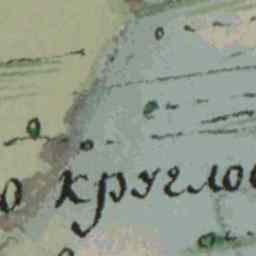 о кругло